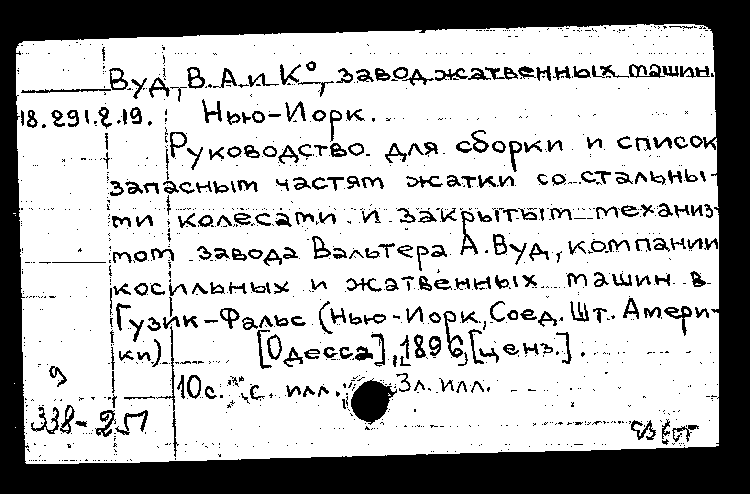 Вуд, В. А. и К°, завод жатвенных машин.
18.291.2.19. Нью-Йорк.
Руководство для сборки и список
запасным частям жатки со стальны-
ми колесами и закрытым механиз-
мом завода Вальтера А. Вуд, компании
косильных и жатвенных машин в
Гузик-Фальс (Нью-Йорк, Соед. Шт. Амери-
ки) [Одесса], 1896, [ценз.].
10с. с. илл. 3л. илл.
9
338-251